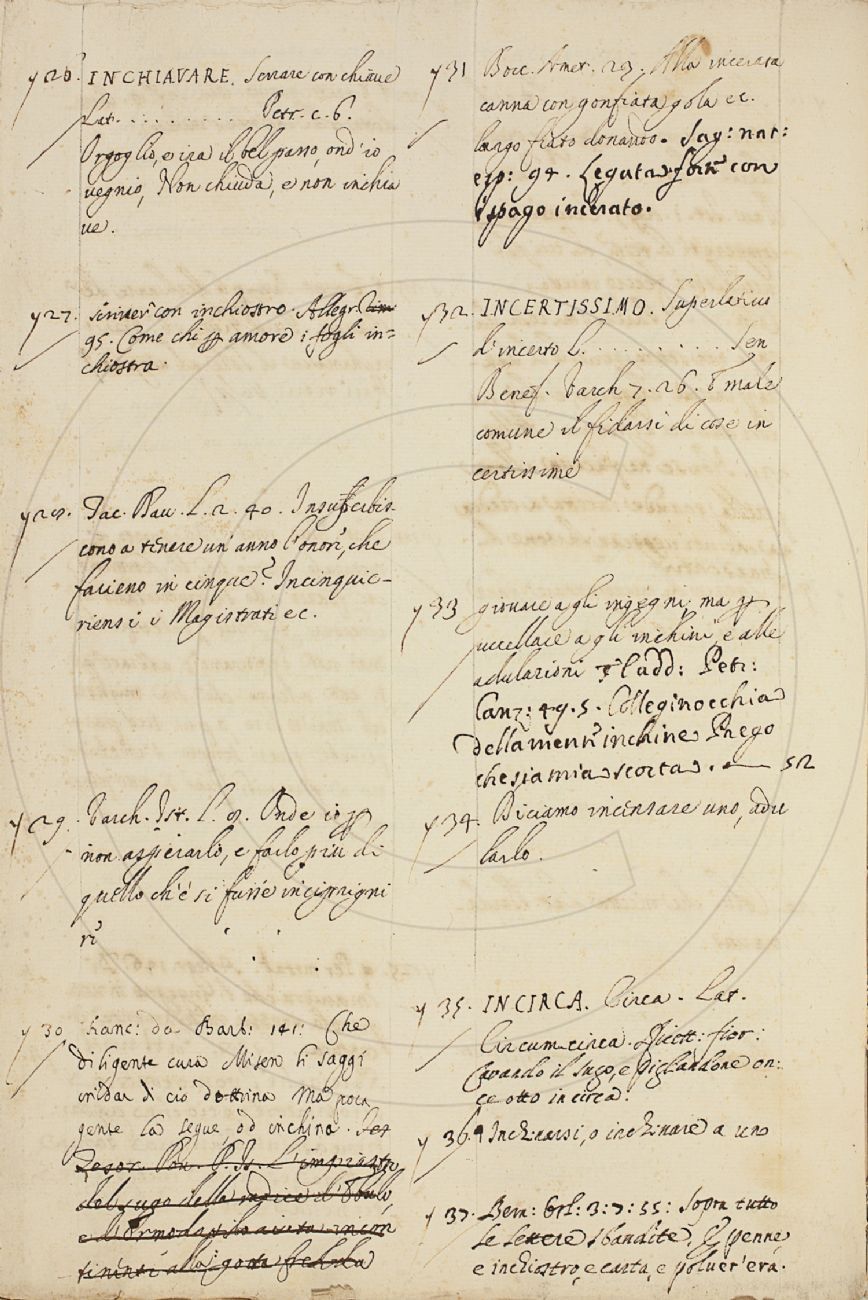 y 26. INCHIAVARE. Serrare con chiave
Lat. . . . . . . . . . Petr. c. 6.
Orgoglio, e ira il bel passo, ond' io
vegnio, Non chiuda, e non inchia
ve.
y 27. scriver con inchiostro. Allegr.
95. Come chi p amore i fogli in=
chiostra.
y 28. Dav. L. 2. 40.
cono a tenere un' anno l'onori, che
facieno in cinque? Incinquie-
riensi i Magistrati ec.
y 29. Varch. Ist. L. Onde io p
non asprerarlo, e farlo più di
quello ch' e' si fusse inciprigni
re
y 30 Franc: da Barb: 141: Che
diligente cura Misen li saggi
di cio dottrina Ma poca
gente la segue, od inchina.
del sugo delle radice
y 31 Bocc. Amet. 29. Alla incerata
canna con gonfiata gola ec.
largo fiato donando. Sag: nat:
esp: 94. Legata con
spago incerato.
y 32. INCERTISSIMO. Superlativo
d'incerto L. . . . . . . . . Sen
Benef. Varch 7. 26. È male
comune il fidarsi di cose in
certissime
y 33 giovare agli ingegni, ma p
uccellare agli inchini, e alle
adulazioni Petr:
Canz: 49. 5. Colle ginocchia
della mente inchine Prego
che sia mia scorta. 52
y 34. Diciamo incensare uno, adu
larlo.
y 35. INCIRCA. Circa. Lat.
Circumcirca. Ricett: fior:
Cavando il sugo, e pigliandone on:
ce otto in circa:
y 36. Inchinarsi, o inchinare a uno
y 37. Bern: Orl: 3: 7: 55: Sopra tutto
le lettere sbandite, E penne,
e inchiostro, e carta, e polver' era.